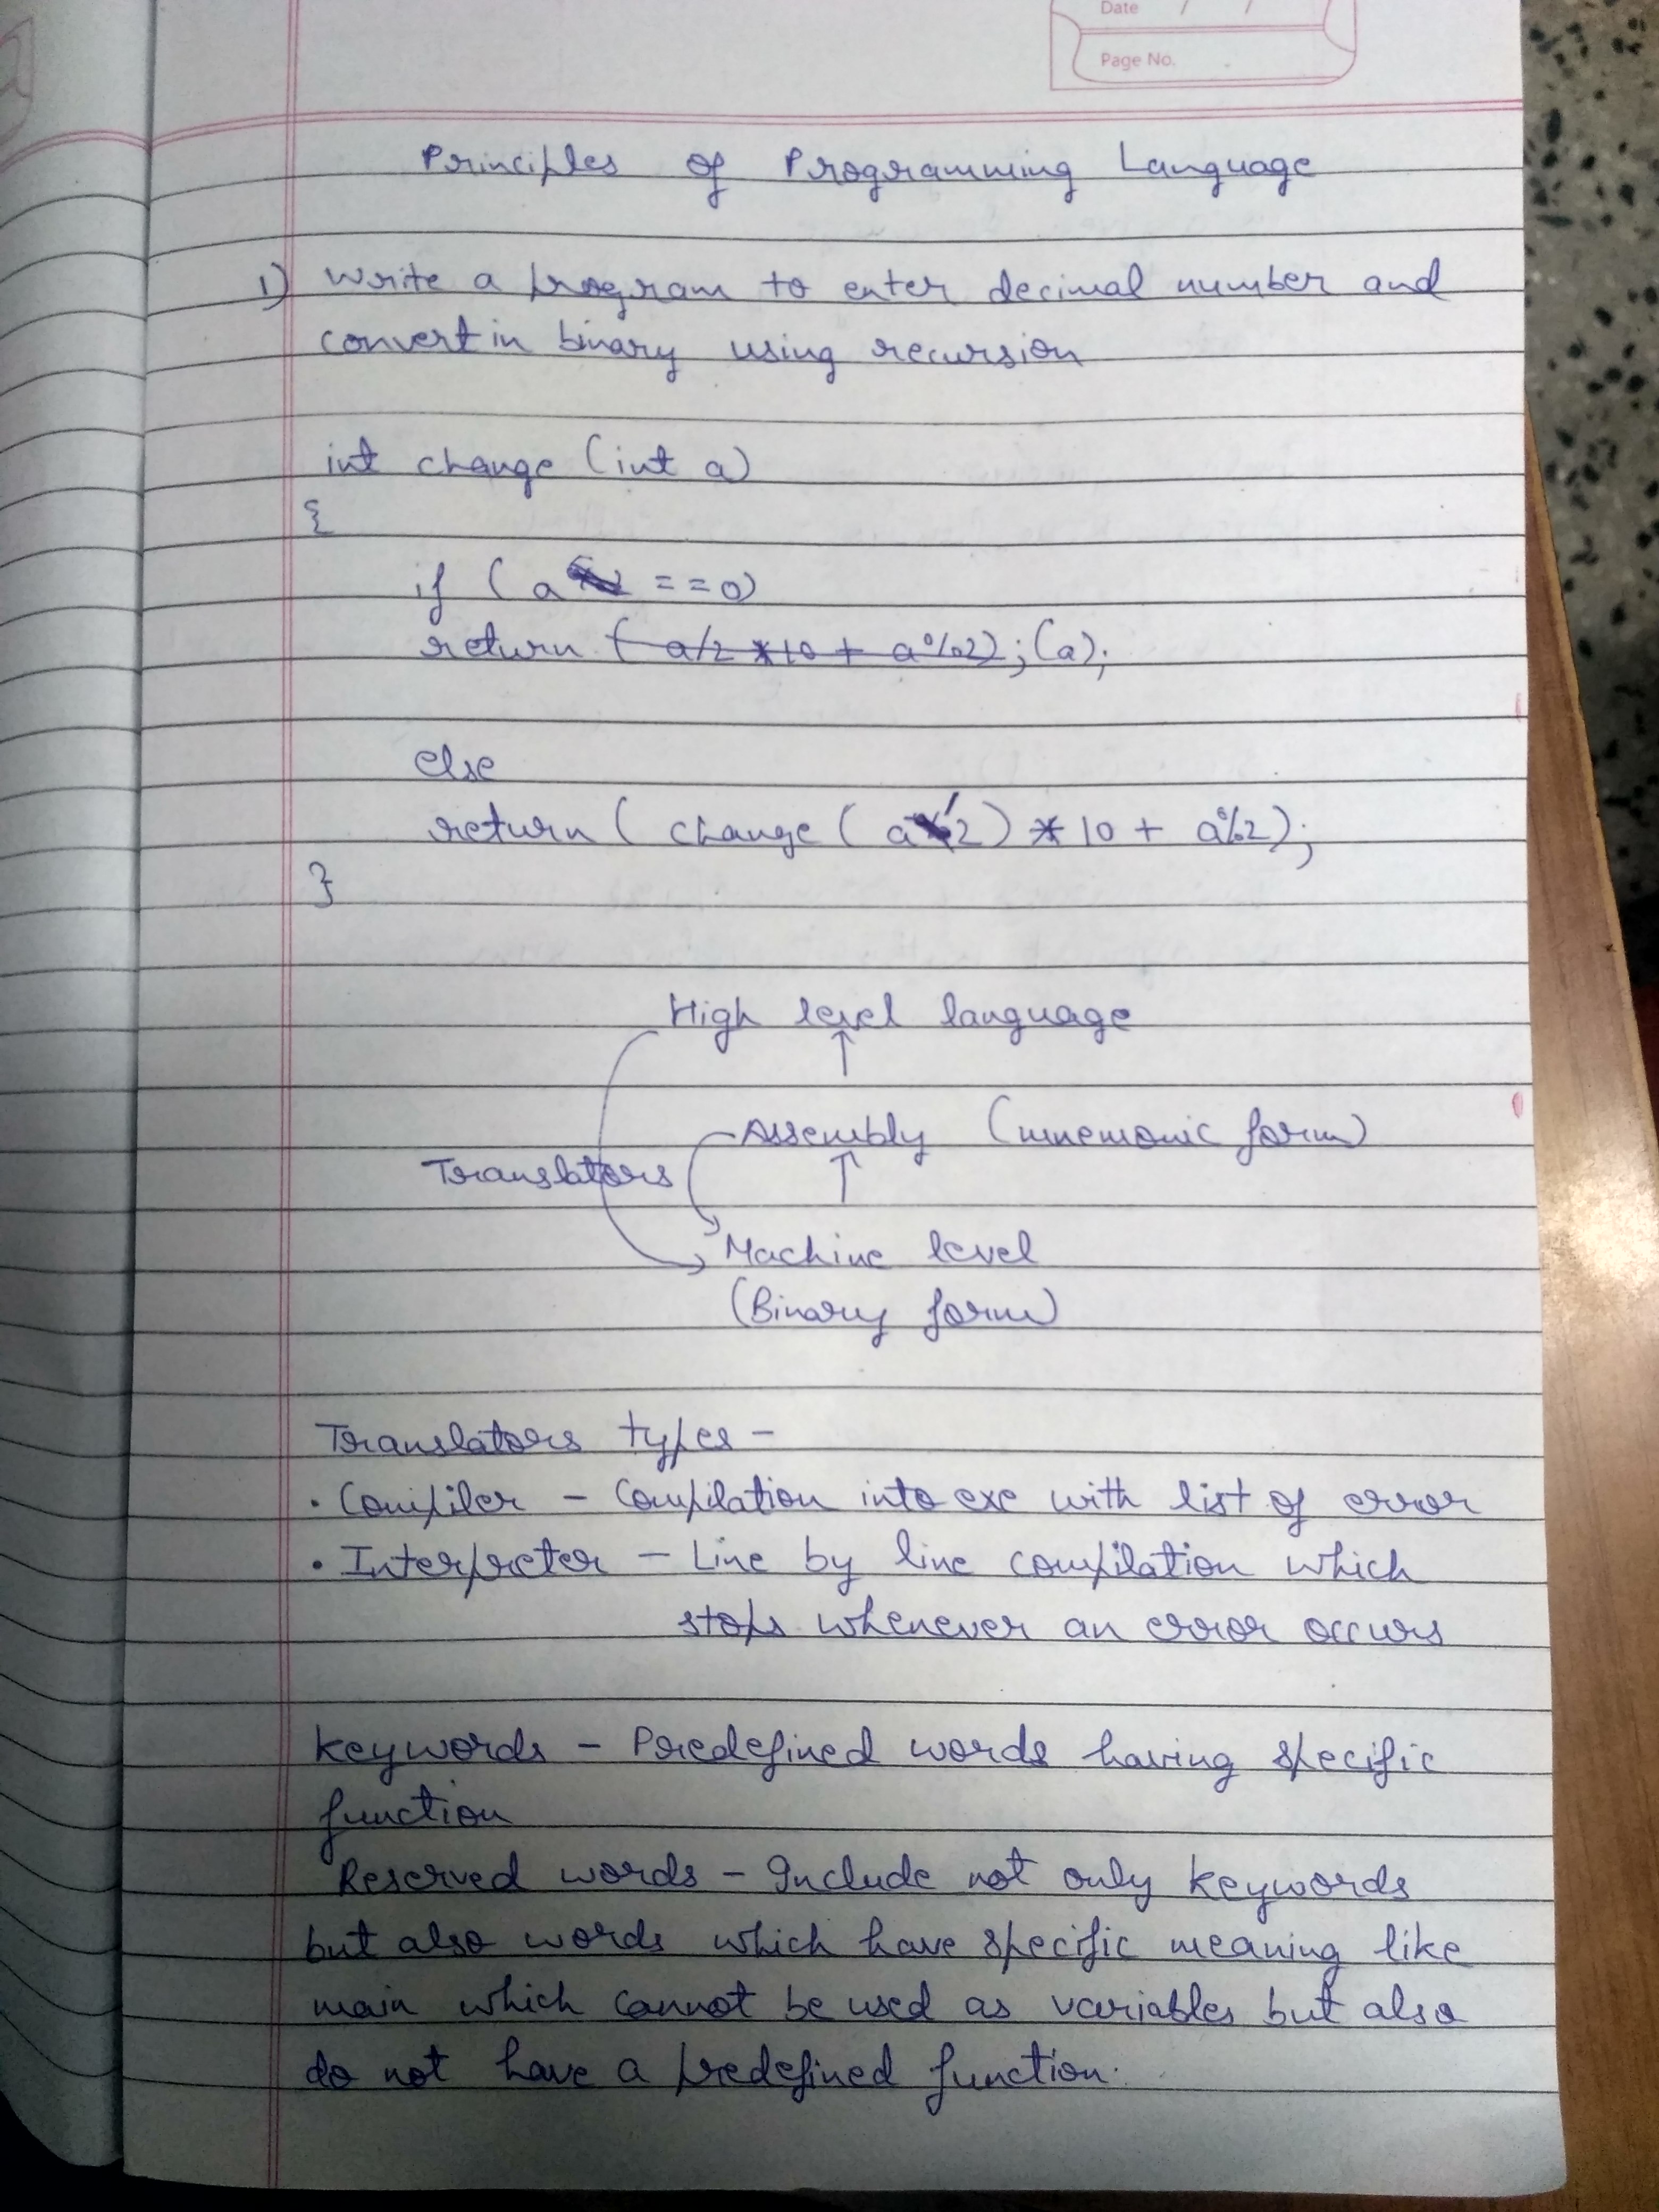 Date / /
Page No.
Principles of Programming Language
1) Write a program to enter decimal number and
convert in binary using recursion
int change (int a)
{
if ( a == 0)
return ( a/2 *10 + a%2); (a);
else
return ( change ( a/2) * 10 + a%2);
}
High level language
Assembly (mnemonic form)
Translators
Machine level
(Binary form)
Translators types -
• Compiler - Compilation into exe with list of error
• Interpreter - Line by line compilation which
stops whenever an error occurs
Keywords - Predefined words having specific
function
Reserved words - Include not only keywords
but also words which have specific meaning like
main which cannot be used as variables but also
do not have a predefined function.